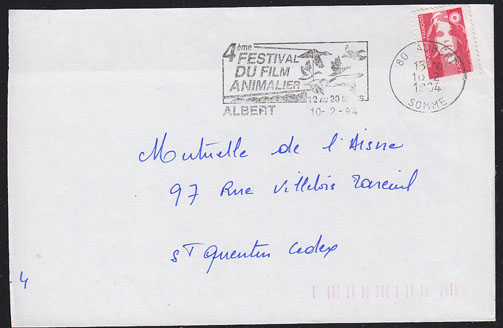 4ème
FESTIVAL
DU FILM
ANIMALIER
12 AU 20 MARS
ALBERT 10-2-94
80 ALBERT
10-2
1994
SOMME
Mutuelle de l'Aisne
97 Rue Villebois Mareuil
St Quentin Cedex
4